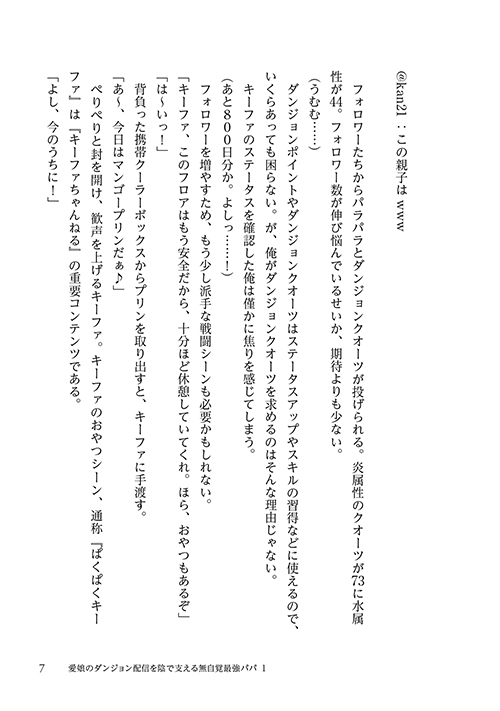 @kan21 : この親子は www
　フォロワーたちからパラパラとダンジョンクオーツが投げられる。炎属性のクオーツが73に水属
性が44。フォロワー数が伸び悩んでいるせいか、期待よりも少ない。
(うむむ……)
　ダンジョンポイントやダンジョンクオーツはステータスアップやスキルの習得などに使えるので、
いくらあっても困らない。が、俺がダンジョンクオーツを求めるのはそんな理由じゃない。
　キーファのステータスを確認した俺は僅かに焦りを感じてしまう。
(あと800日分か。よしっ……！)
　フォロワーを増やすため、もう少し派手な戦闘シーンも必要かもしれない。
「キーファ、このフロアはもう安全だから、十分ほど休憩していてくれ。ほら、おやつもあるぞ」
「は～いっ！」
　背負った携帯クーラーボックスからプリンを取り出すと、キーファに手渡す。
「あ～、今日はマンゴープリンだぁ♪」
　ぺりぺりと封を開け、歓声を上げるキーファ。キーファのおやつシーン、通称『ぱくぱくキー
ファ』は『キーファちゃんねる』の重要コンテンツである。
「よし、今のうちに！」
7　愛娘のダンジョン配信を陰で支える無自覚最強パパ 1